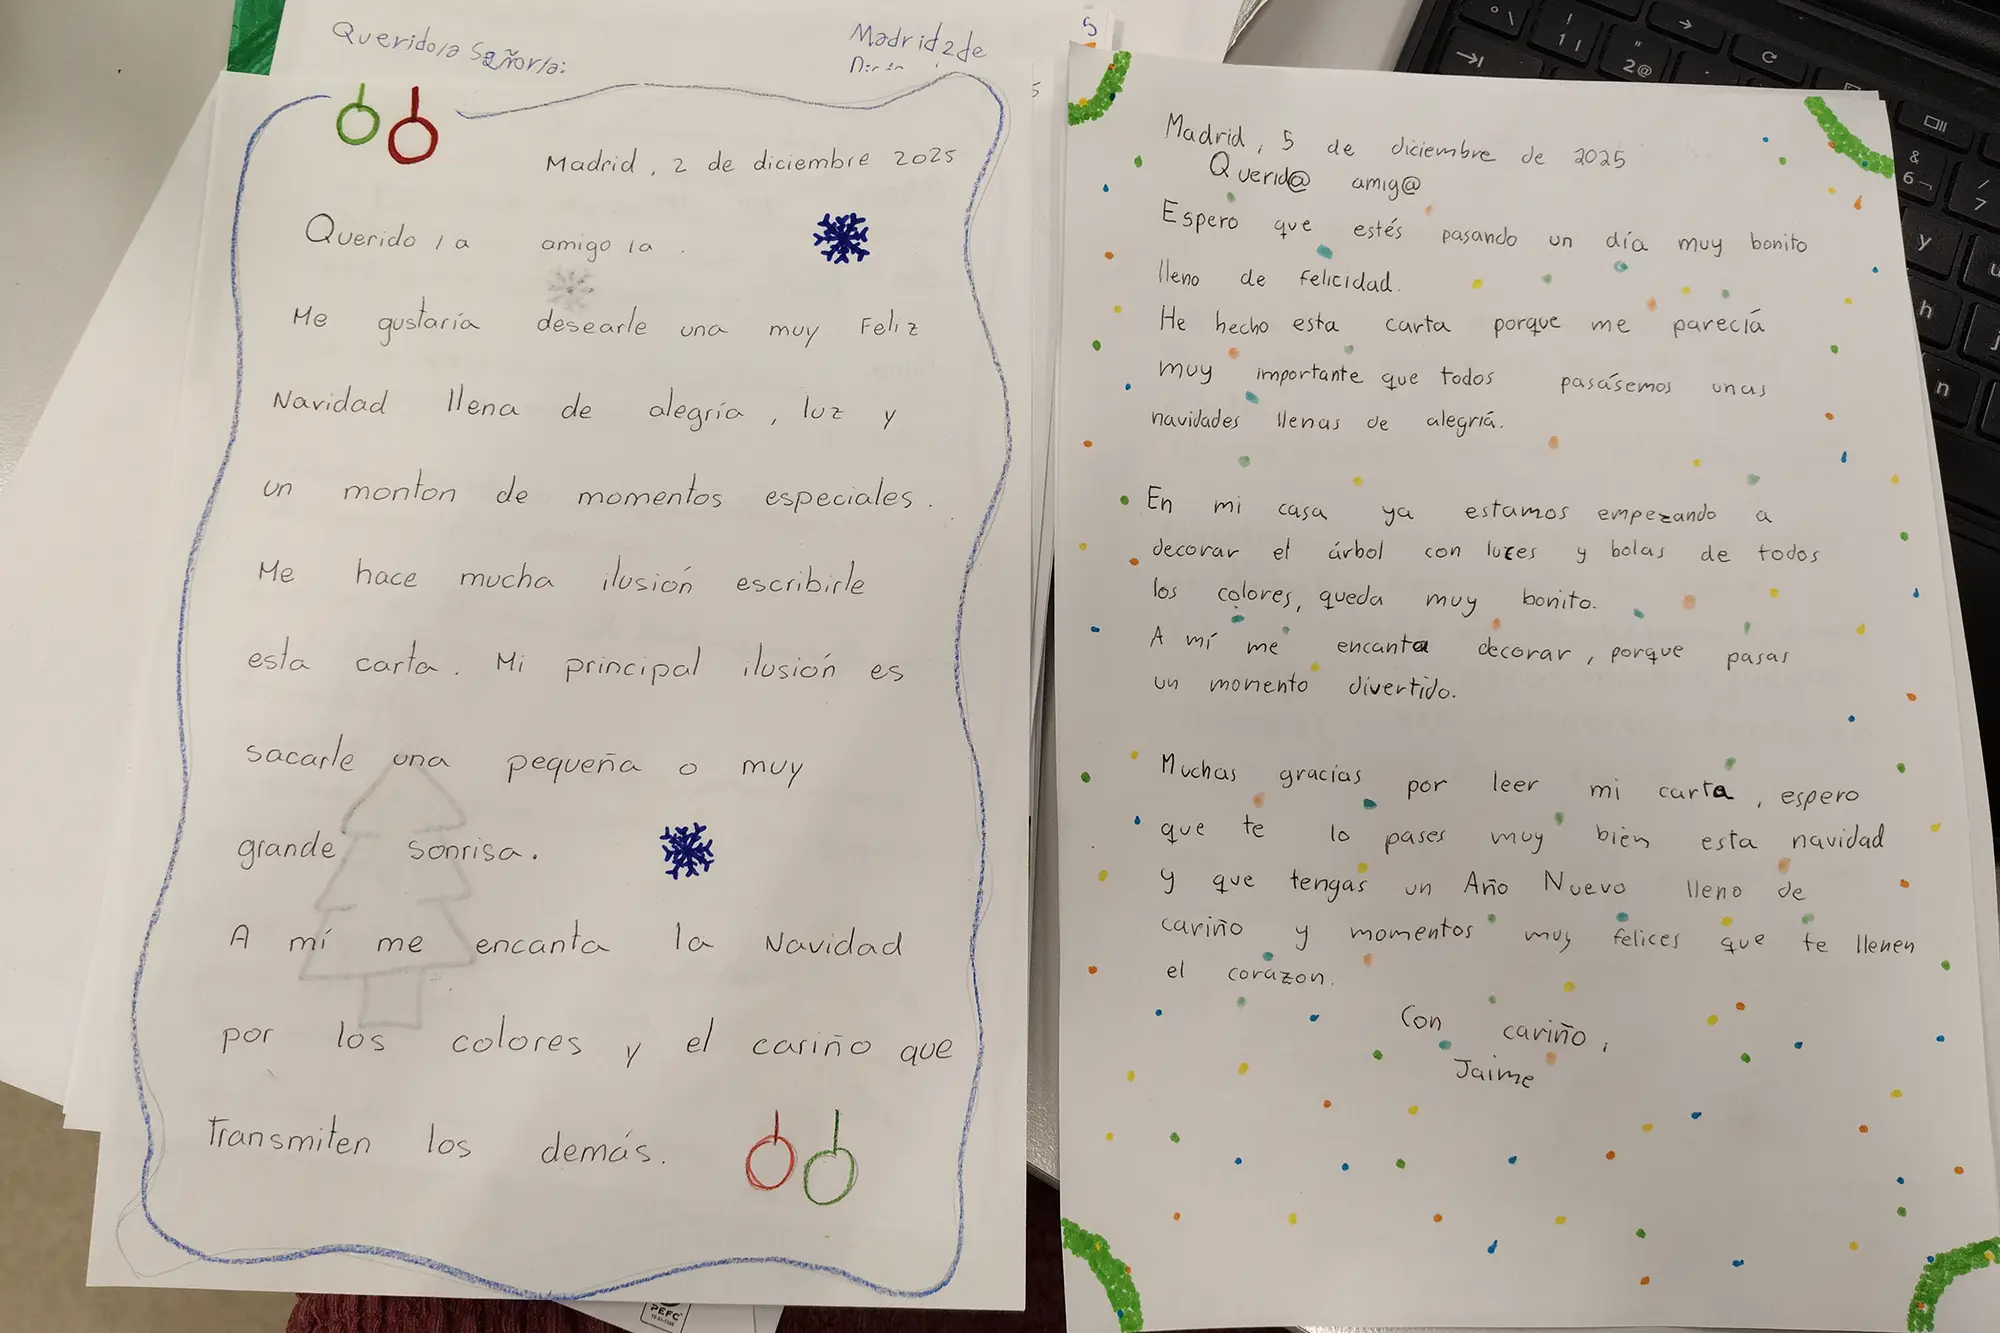 Querido/a Señor/a:
Madrid 2 de
Madrid, 2 de diciembre 2025
Querido/a amigo/a.
Me gustaría desearle una muy Feliz
Navidad llena de alegría, luz y
un monton de momentos especiales.
Me hace mucha ilusión escribirle
esta carta. Mi principal ilusión es
sacarle una pequeña o muy
grande sonrisa.
A mí me encanta la Navidad
por los colores y el cariño que
transmiten los demás.
Madrid, 5 de diciembre de 2025
Querid@ amig@
Espero que estés pasando un día muy bonito
lleno de felicidad.
He hecho esta carta porque me parecía
muy importante que todos pasásemos unas
navidades llenas de alegría.
En mi casa ya estamos empezando a
decorar el árbol con luces y bolas de todos
los colores, queda muy bonito.
A mí me encanta decorar, porque pasas
un momento divertido.
Muchas gracias por leer mi carta, espero
que te lo pases muy bien esta navidad
y que tengas un Año Nuevo lleno de
cariño y momentos muy felices que te llenen
el corazon.
Con cariño,
Jaime
PEFC